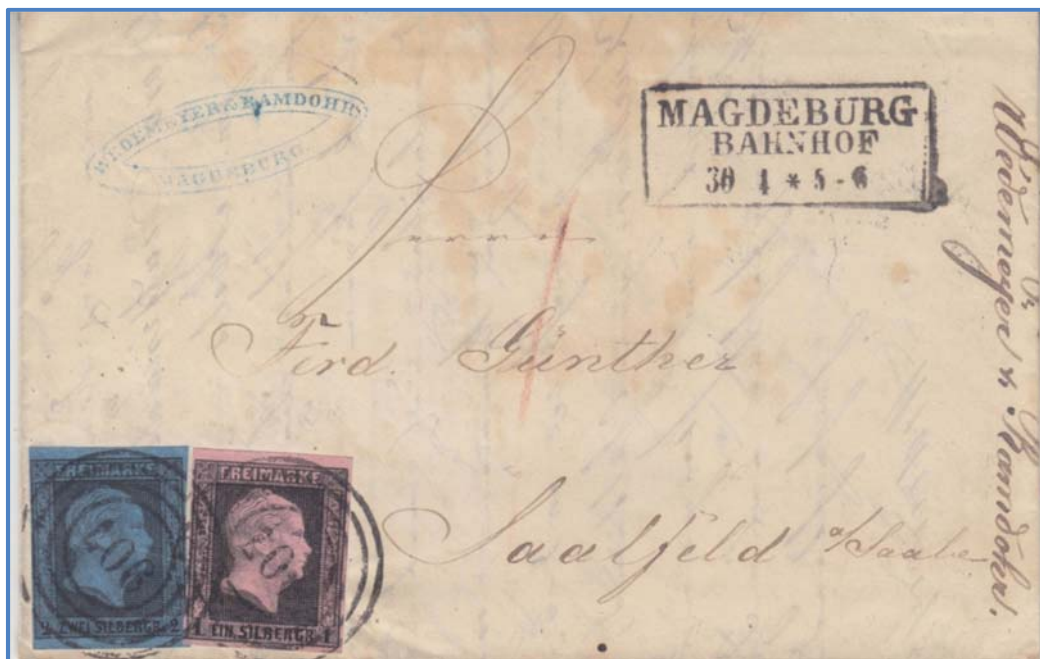 WEDEMEYER & RAMDOHR
MAGDEBURG
MAGDEBURG
BAHNHOF
30 1 * 5-6
Herrn
Ferd. Günther
Saalfeld a/Saale
Wedemeyer & Ramdohr.
FREIMARKE
2 ZWEI SILBERGR. 2
FREIMARKE
1 EIN SILBERGR. 1